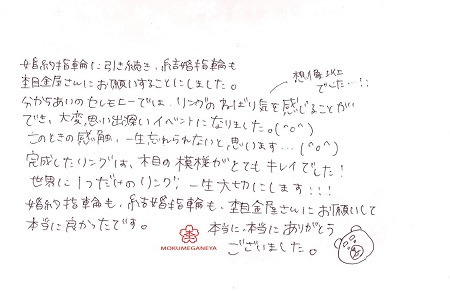 婚約指輪に引き続き、結婚指輪も
杢目金屋さんにお願いすることにしました。
分かちあいのセレモニーでは、リングのねばり気を感じることが
想像以上
でした…!!
でき、大変思い出深いイベントになりました。(^o^)
このときの感触、一生忘れられないと思います…(^o^)
完成したリングは、木目の模様がとてもキレイでした!
世界に1つだけのリング、一生大切にします!!!
婚約指輪も、結婚指輪も、杢目金屋さんにお願いして
本当に良かったです。
本当に、本当にありがとう
ございました。
MOKUMEGANEYA